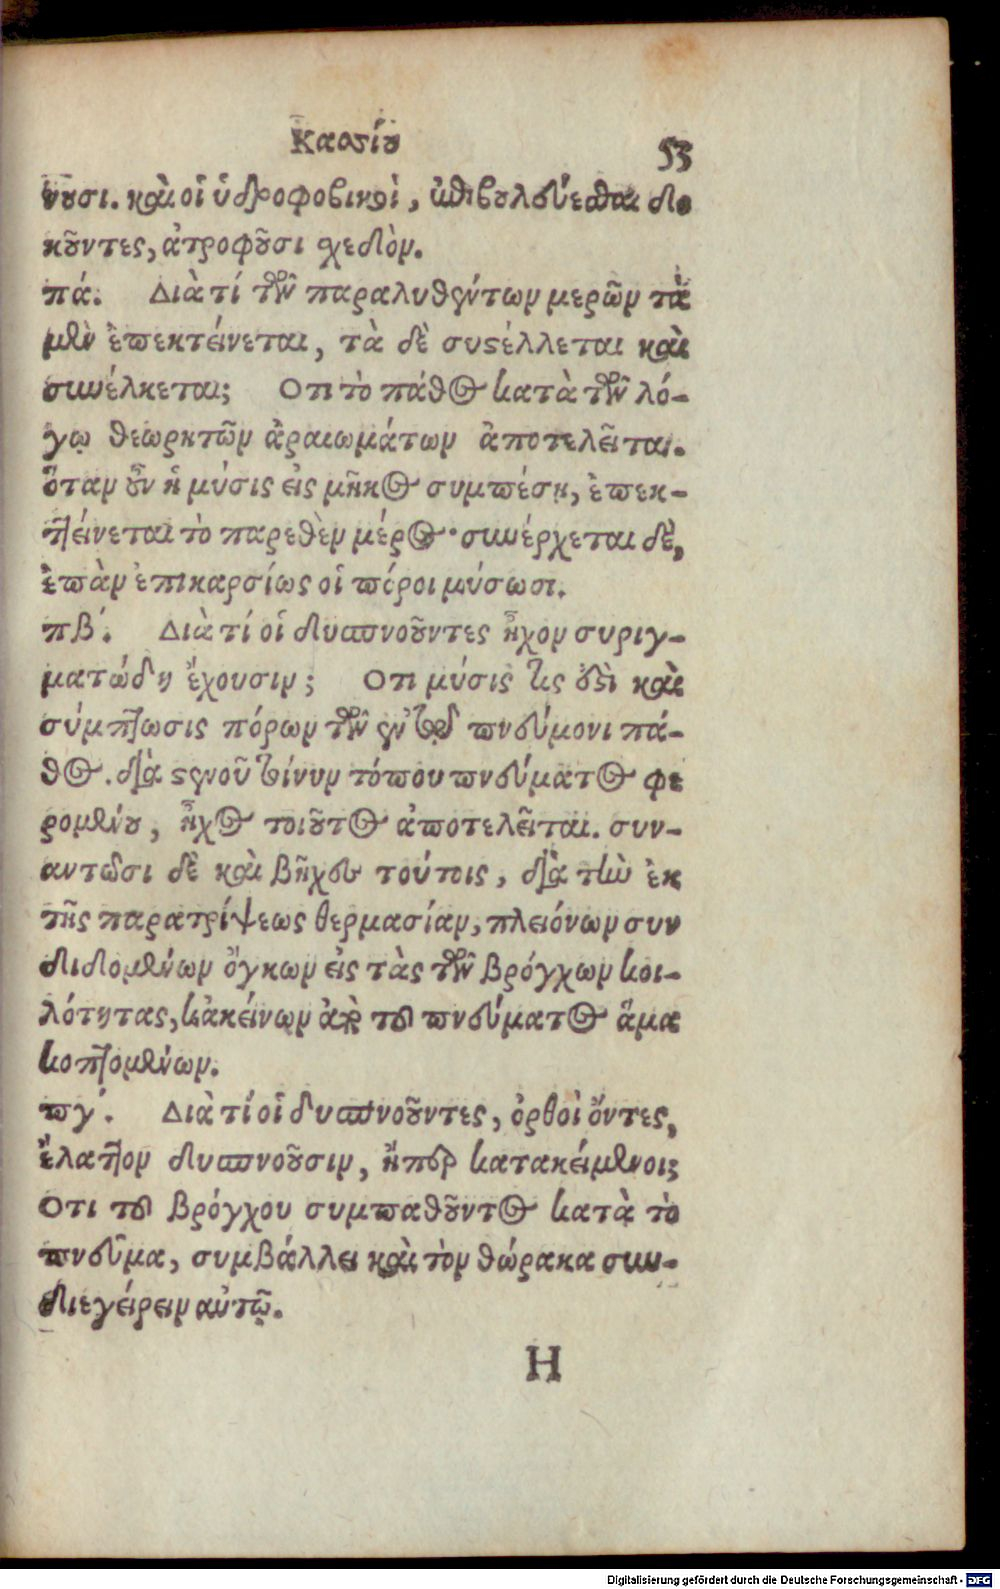 Κασσίου 53
νουσι. καὶ οἱ ὑδροφοβικοὶ, ἐπιβουλεύεσθαι δο
κοῦντες, ἀτροφοῦσι σχεδὸν.
πά. Διὰ τί τῶν παραλυθέντων μερῶν τὰ
μὲν ἐπεκτείνεται, τὰ δὲ συστέλλεται καὶ
συνέλκεται; Οτι τὸ πάθος κατὰ τῶν λό-
γῳ θεωρητῶν ἀραιωμάτων ἀποτελεῖται.
ὅταν οὖν ἡ μύσις εἰς μῆκος συμπέσῃ, ἐπεκ-
τείνεται τὸ παρεθὲν μέρος· συνέρχεται δὲ,
ἐπὰν ἐπικαρσίως οἱ πόροι μύσωσι.
πβ΄. Διὰ τί οἱ δυσπνοοῦντες ἦχον συριγ-
ματώδη ἔχουσιν; Οτι μύσις τίς ὅδει καὶ
σύμπτωσις πόρων τῶν ἐν τῷ πνεύμονι πά-
θος. διὰ στενοῦ τοίνυν τόπου πνεύματος φε
ρομένου, ἦχος τοιοῦτος ἀποτελεῖται. συν-
αντῶσι δὲ καὶ βῆχες τούτοις, διὰ τὴν ἐκ
τῆς παρατρίψεως θερμασίαν, πλειόνων συν
διδομένων ὄγκων εἰς τὰς τῶν βρόγχων κοι-
λότητας, κἀκείνων ἀπὸ τοῦ πνεύματος ἅμα
κοπτομένων.
πγ΄. Διὰ τί οἱ δυσπνοοῦντες, ὀρθοὶ ὄντες,
ἔλαττον δυσπνοοῦσιν, ἤπερ κατακείμενοι;
Οτι τοῦ βρόγχου συμπαθοῦντος κατὰ τὸ
πνεῦμα, συμβάλλει καὶ τὸν θώρακα συν-
διεγείρειν αὐτῷ.
H
Digitalisierung gefördert durch die Deutsche Forschungsgemeinschaft - DFG